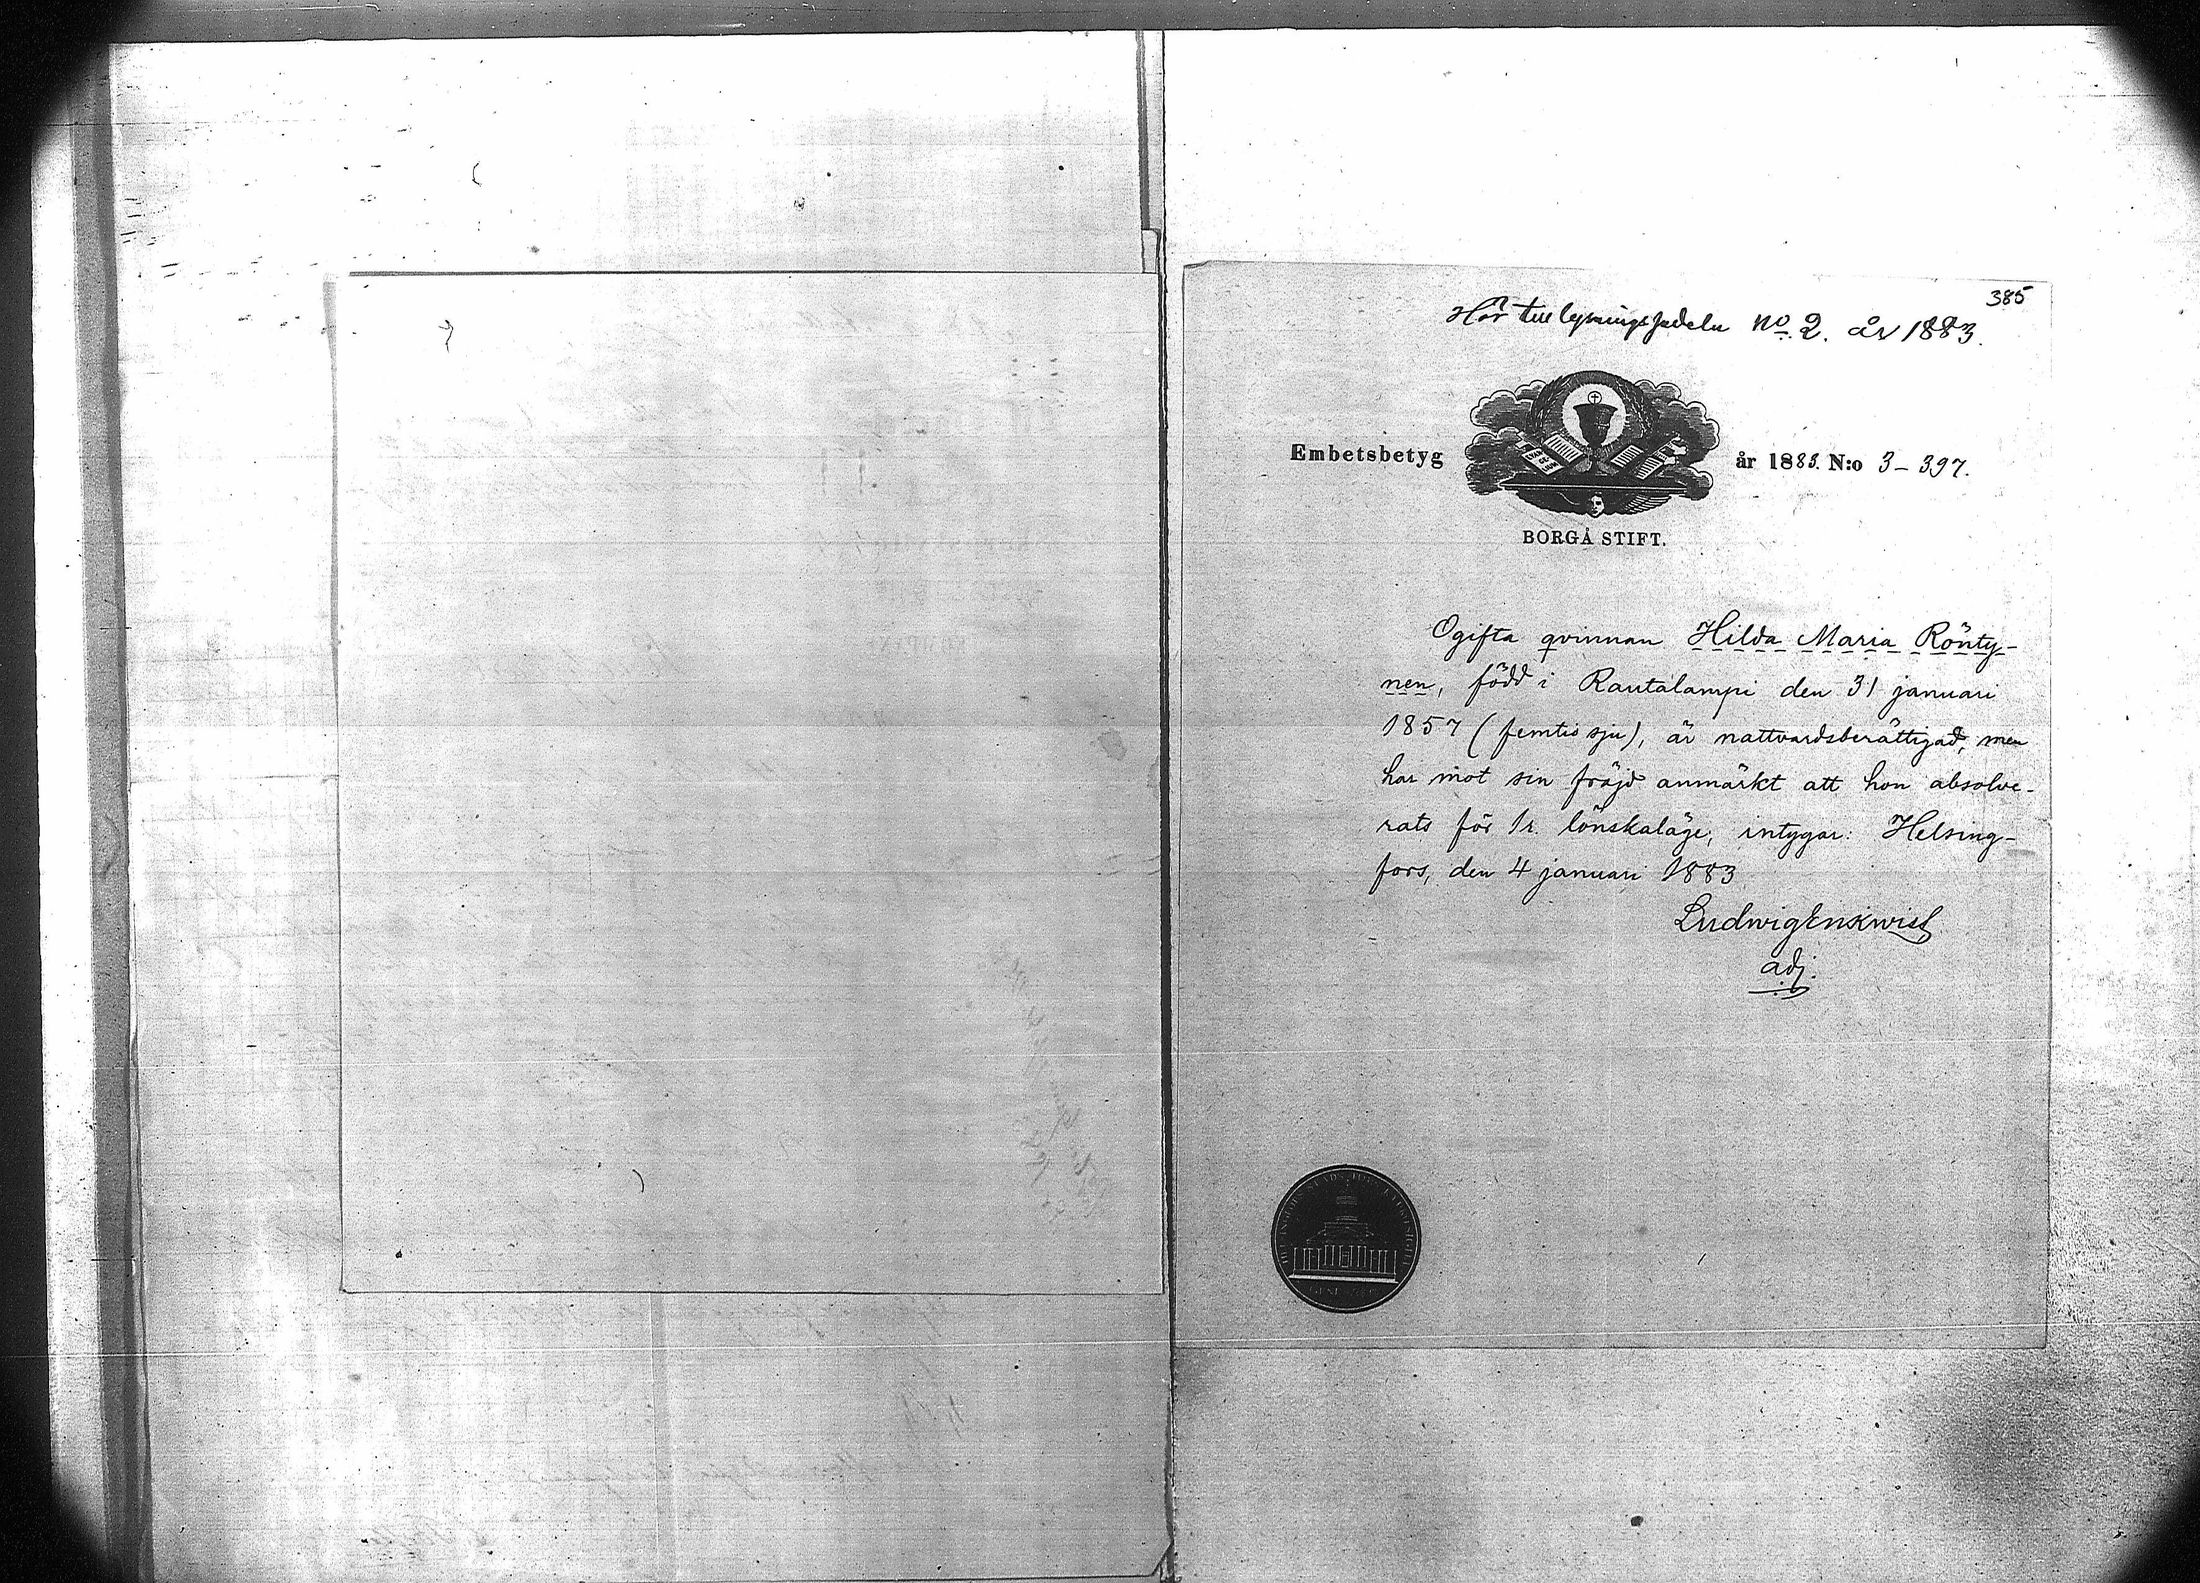 385
Hör till lysningssedeln No 2. år 1883.
Embetsbetyg år 1883. N:o 3-397.
EVAN GE LIUM
BORGÅ STIFT.
Ogifta qvinnan Hilda Maria Rönty-
nen, född i Rautalampi den 31 januari
1857 (femtio sju), är nattvardsberättigad, men
har mot sin fräjd anmärkt att hon absolve-
rats för 1r. lönskaläge, intygar: Helsing-
fors, den 4 januari 1883
Ludwig Enkwist
adj.